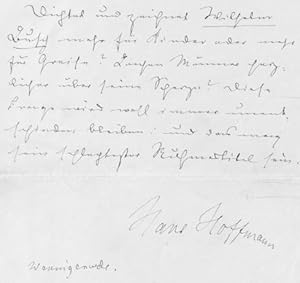 Dichtet und zeichnet Wilhelm
Busch mehr für Kinder oder mehr
für Greise? Lachen Männer herz-
licher über seine Scherze? Diese
Frage wird wohl immer unent-
schieden bleiben: und das mag
sein schlagendster Ruhmestitel sein.
Hans Hoffmann
Wernigerode.